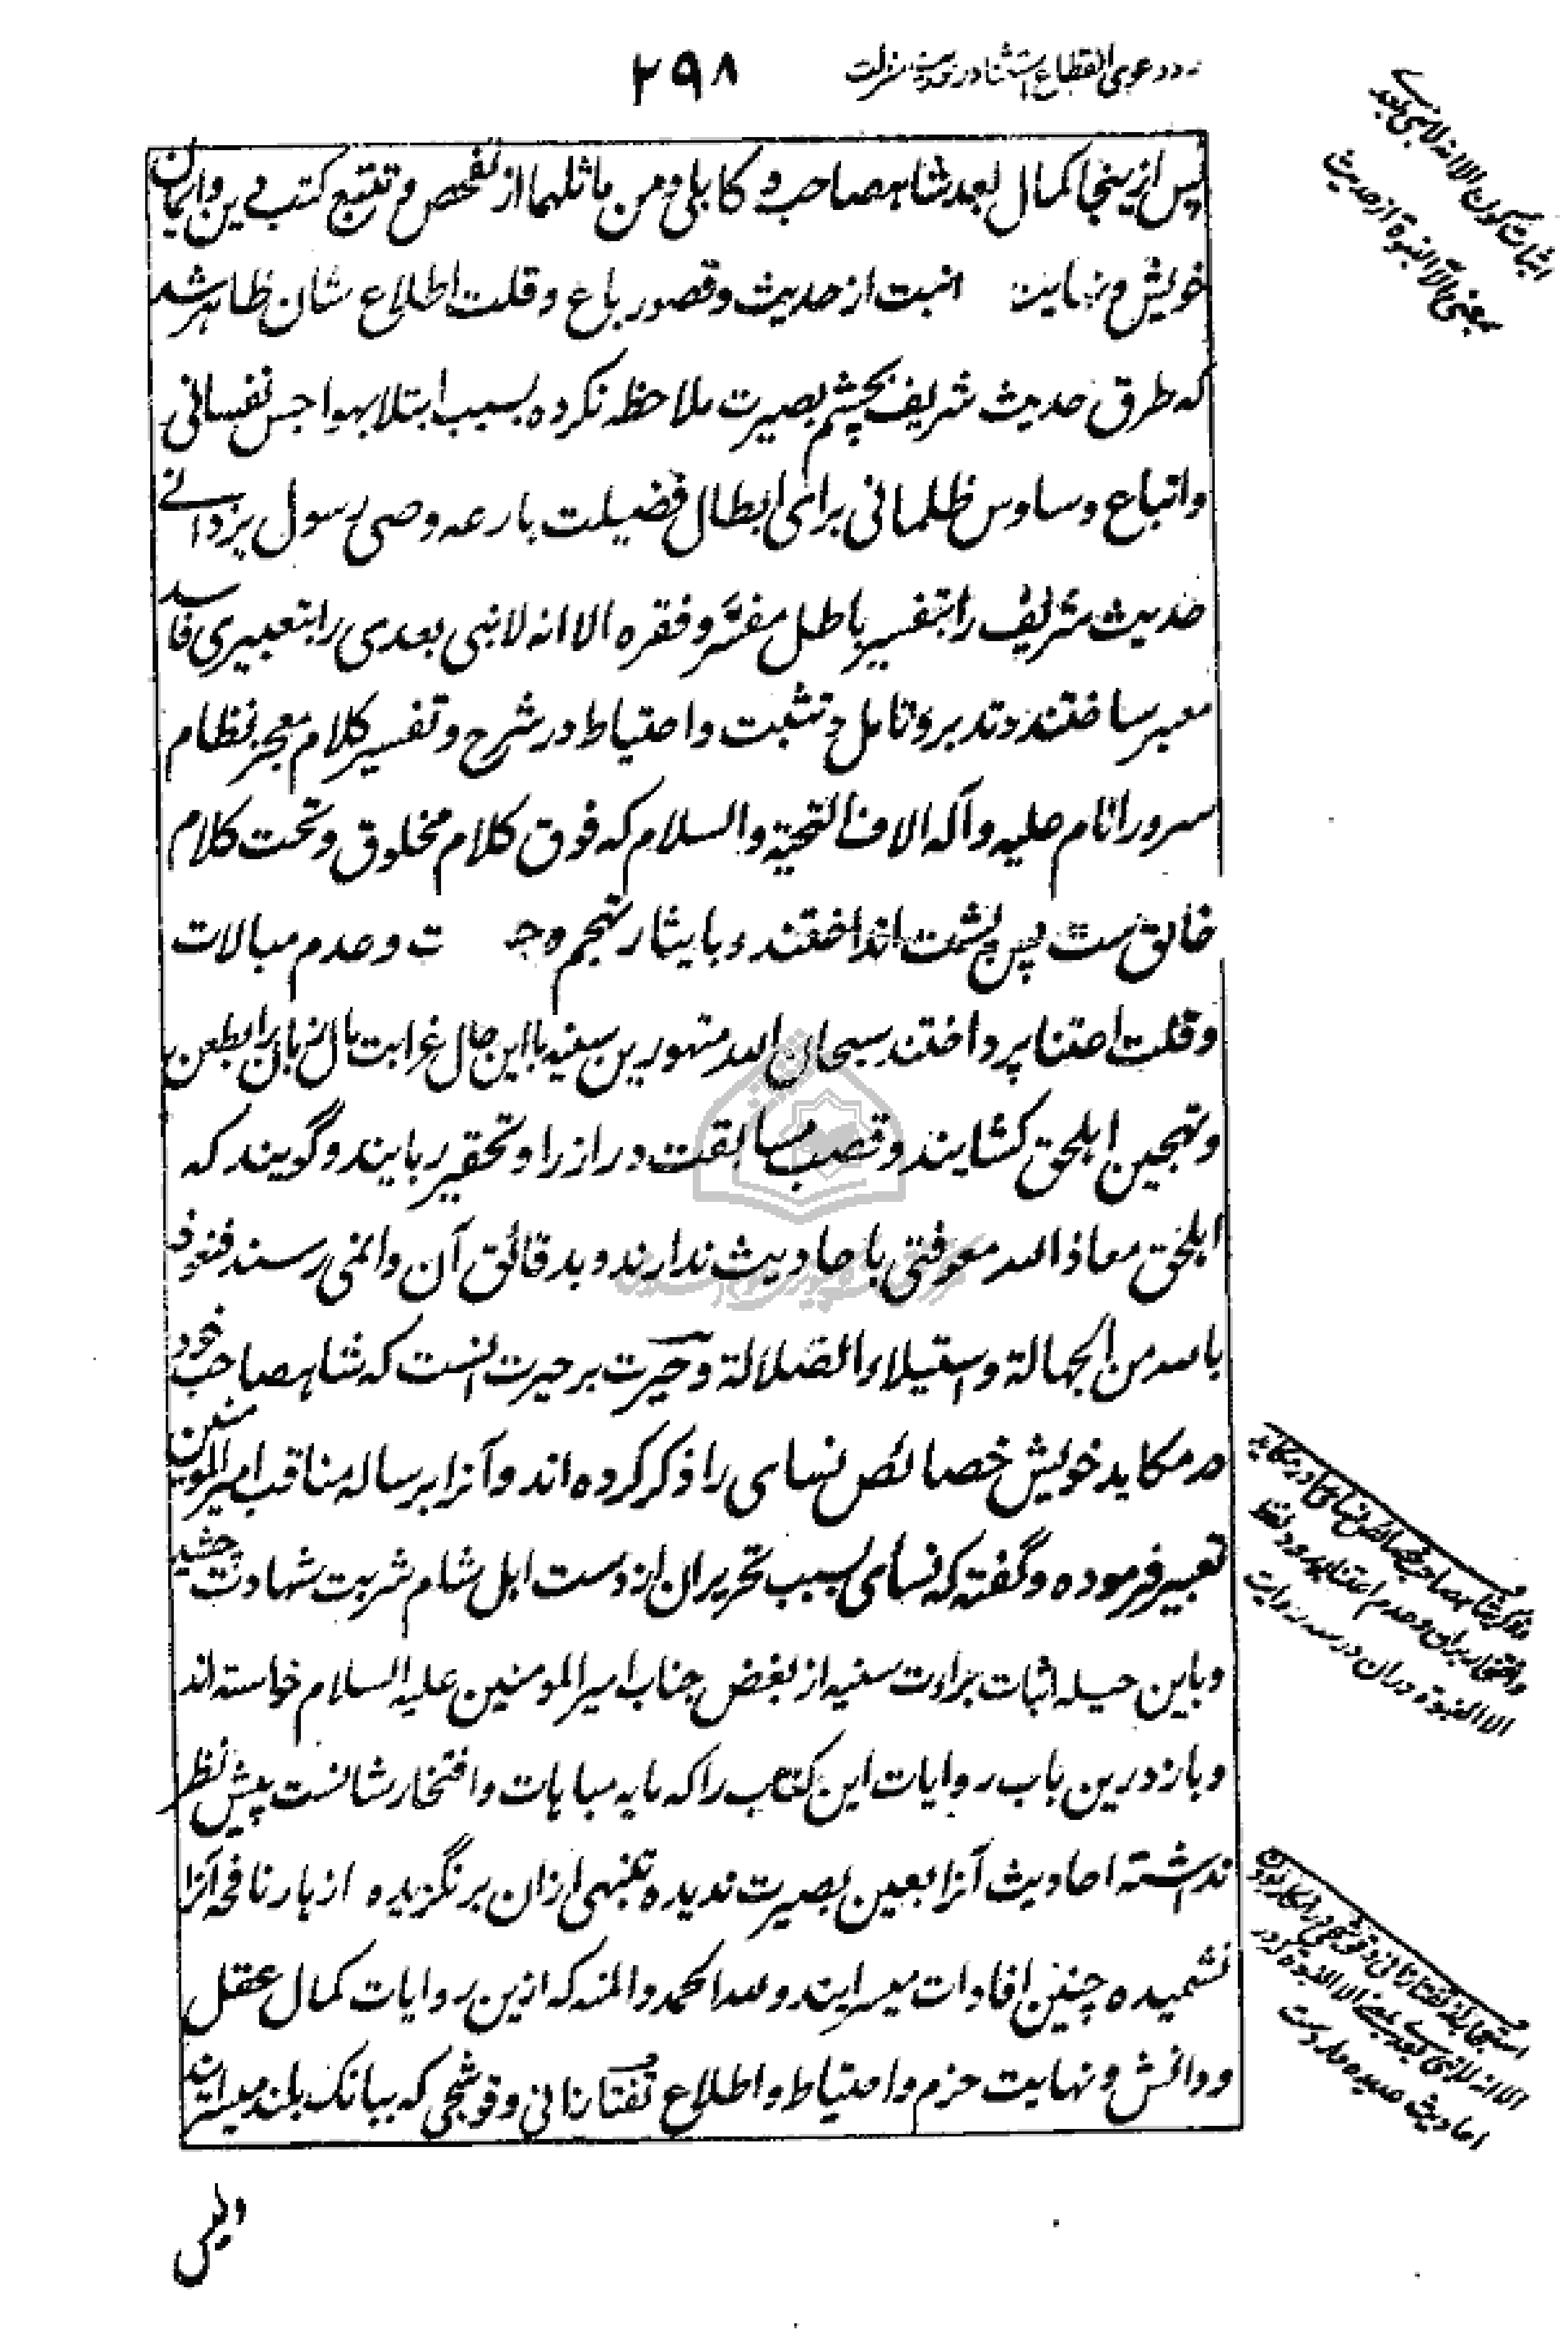 رد دعوی انقطاع استثنا در حدیث منزلت
۲۹۸
اثبات کون الا انه لا نبی بعدی
بمعنی الا النبوة از حدیث
پس ازینجا کمال بعد شاهصاحب و کابلی و من ماثلهما از تفحص و تتبع کتب دین و ایمان
خویش و نهایت انبت از حدیث و قصور باع و قلت اطلاع شان ظاهر شد
که طرق حدیث شریف بچشم بصیرت ملاحظه نکرده بسبب ابتلا بهواجس نفسانی
و اتباع وساوس ظلمانی برای ابطال فضیلت بارعه وصی رسول یزدانے
حدیث شریف را بتفسیر باطل مفسَّر و فقره الا انه لا نبی بعدی را بتعبیری فاسد
معبر ساختند و تدبر و تامل و تثبت و احتیاط در شرح و تفسیر کلام معجز نظام
سرور انام علیه و آله الاف التحیة والسلام که فوق کلام مخلوق و تحت کلام
خالق ست پس پشت انداختند و بایثار تهجم و جـ ت و عدم مبالات
و قلت اعتنا پرداختند سبحان الله متهورین سنیه با این حال غرابت مال زبان را بطعن
و تهجین اهلحق کشایند و قصب مسابقت در ازرا و تحقیر ربایند و گویند که
اهلحق معاذ الله معرفتی باحادیث ندارند و بدقائق آن وانمی رسند فنعوذ
بالله من الجهالة و استیلاء الضلالة و حیرت بر حیرت انست که شاهصاحب خود
در مکاید خویش خصائص نسای را ذکر کرده اند و آنرا برساله مناقب امیر المومنین
تعبیر فرموده و گفته که نسای بسبب تحریر ان از دست اهل شام شربت شهادت چشید
و باین حیله اثبات براءت سنیه از بغض جناب امیر المومنین علیه السلام خواسته اند
و باز درین باب روایات این کتاب را که مایه مباهات و افتخار شانست پیش نظر
نداشته احادیث آنرا بعین بصیرت ندیده تنبهی ازان بر نگزیده ازهار نافحه آنرا
نشمیده چنین افادات میسرایند و لله الحمد والمنه که ازین روایات کمال عقل
و دانش و نهایت حزم و احتیاط و اطلاع تفتازانی و قوشجی که ببانک بلند میسرایند
ذکر شاهصاحب خصائص نسای در مکاید
و افتخار بران و عدم اعتنا بوجود لفظ
الا النبوة دران در سه روایت
الا انه لا نبی بعدی بمعنی الا النبوة که در
احادیث عدیده وارد ست
ولیس